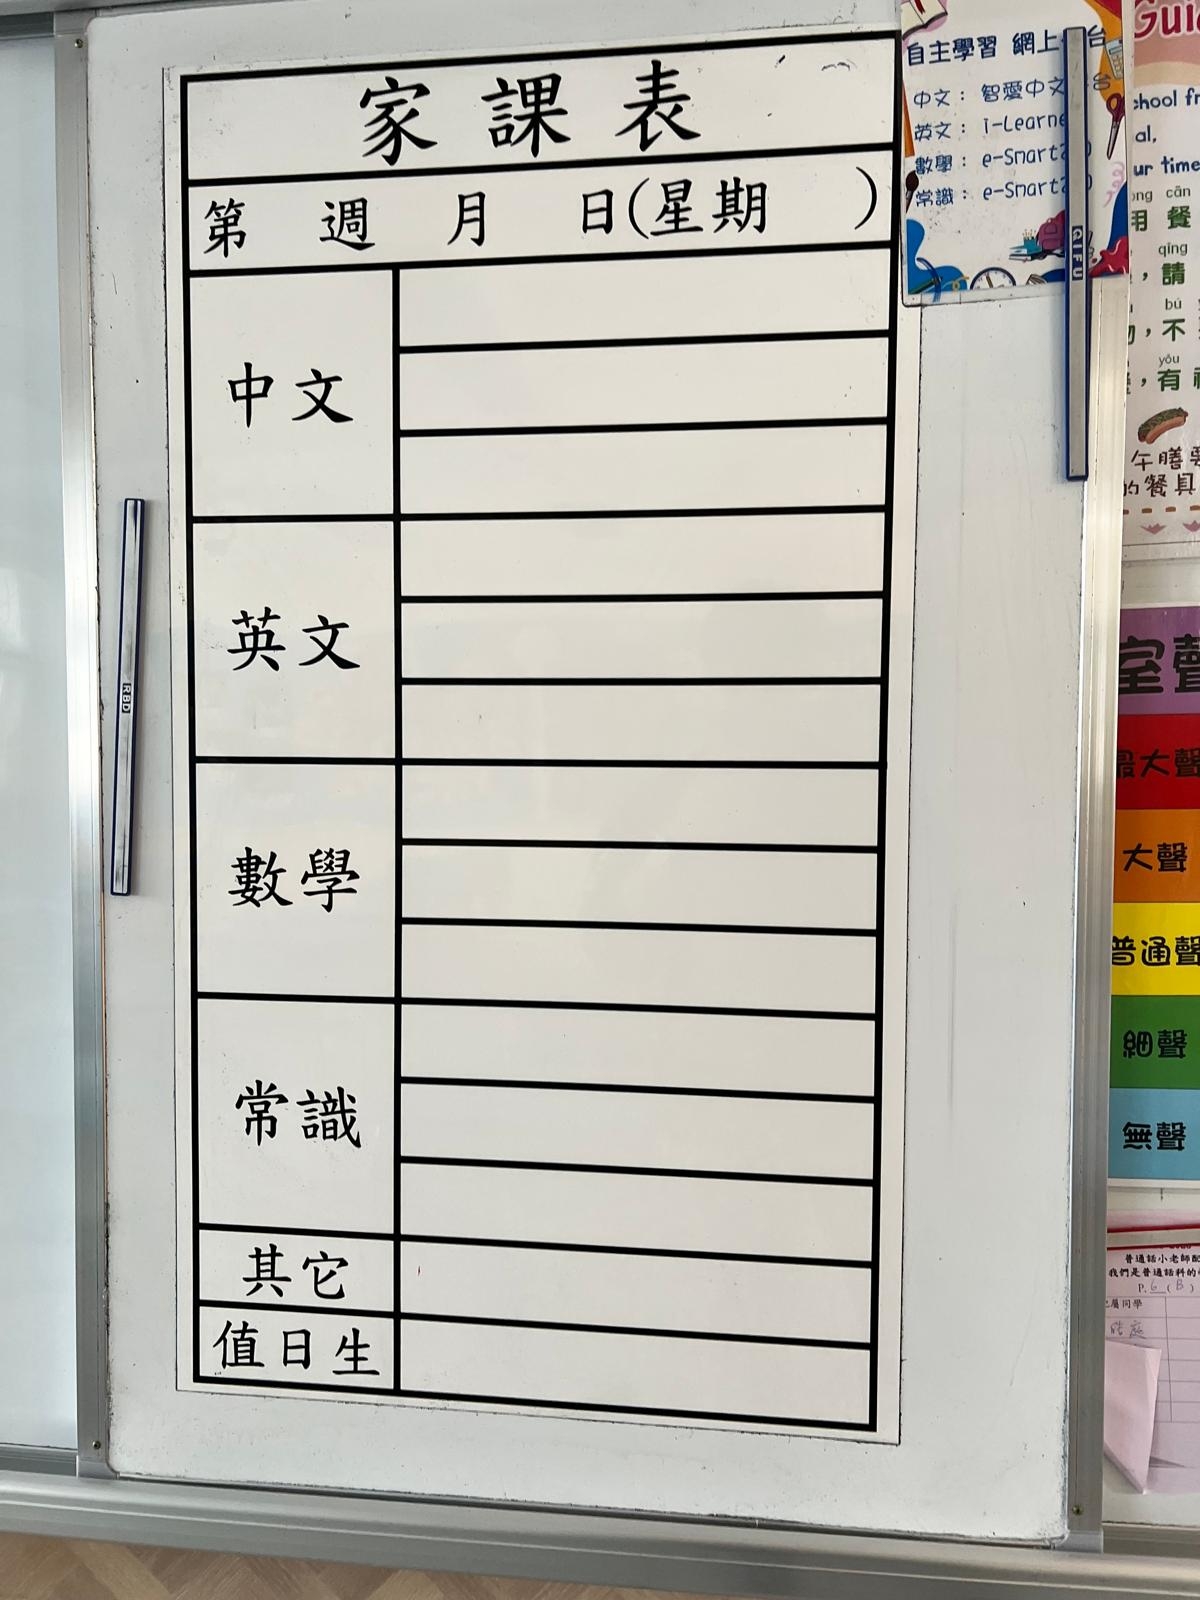 家課表
第 週 月 日(星期 )
中文
英文
數學
常識
其它
值日生
自主學習 網上 台
中文：智愛中文 台
英文：i-Learne
數學：e-Smart
常識：e-Smart
GIFU
RBD
Gui
chool fr
al,
ur time
cān
用 餐
qīng
，請
bú
，不
yǒu
，有
午膳
的餐具
室聲
最大聲
大聲
普通聲
細聲
無聲
普通話小老師配
我們是普通話科的
P.6(B)
屬同學